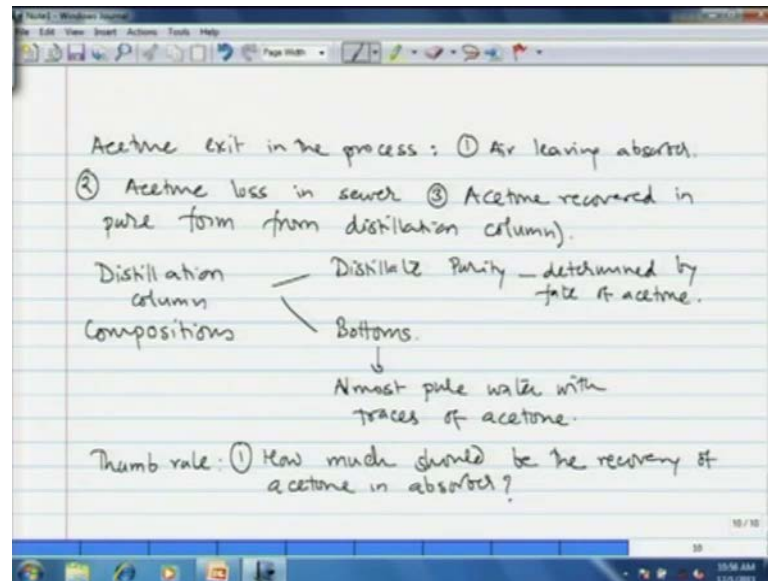 Note1 - Windows Journal
File Edit View Insert Actions Tools Help
Page Width
Acetone exit in the process : ① Air leaving absorber.
② Acetone loss in sewer ③ Acetone recovered in
pure form from distillation column).
Distillation column Compositions
Distillate Purity – determined by fate of acetone.
Bottoms.
Almost pure water with
traces of acetone.
Thumb rule : ① How much should be the recovery of
acetone in absorber?
10 / 10
10
10:56 AM